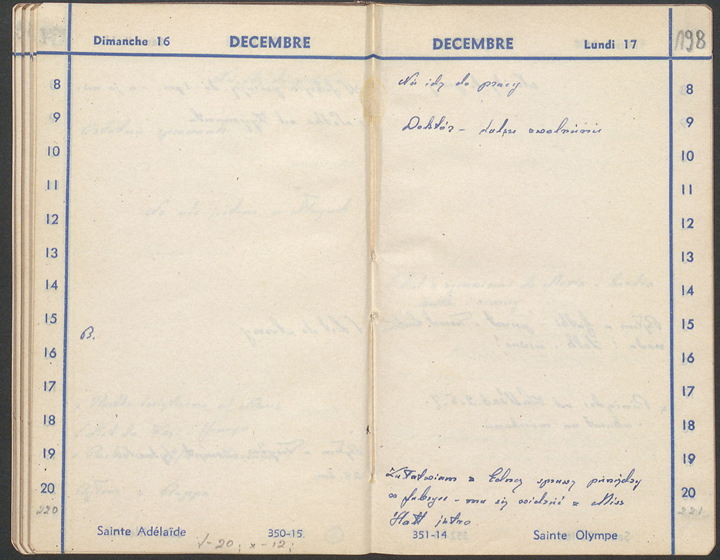 Dimanche 16 DECEMBRE
8
9
10
11
12
13
14
15
B.
16
17
18
19
20
220
Sainte Adélaïde 350-15
V-20; x-12;
DECEMBRE Lundi 17
198
8
Nie idę do pracy
9
Doktór - dalsze zwolnienie
10
11
12
13
14
15
16
17
18
19
Załatwiam z Edną sprawy pieniężne
20
w fabryce - ma się widzieć z Miss
221
Hatt jutro
351-14 Sainte Olympe